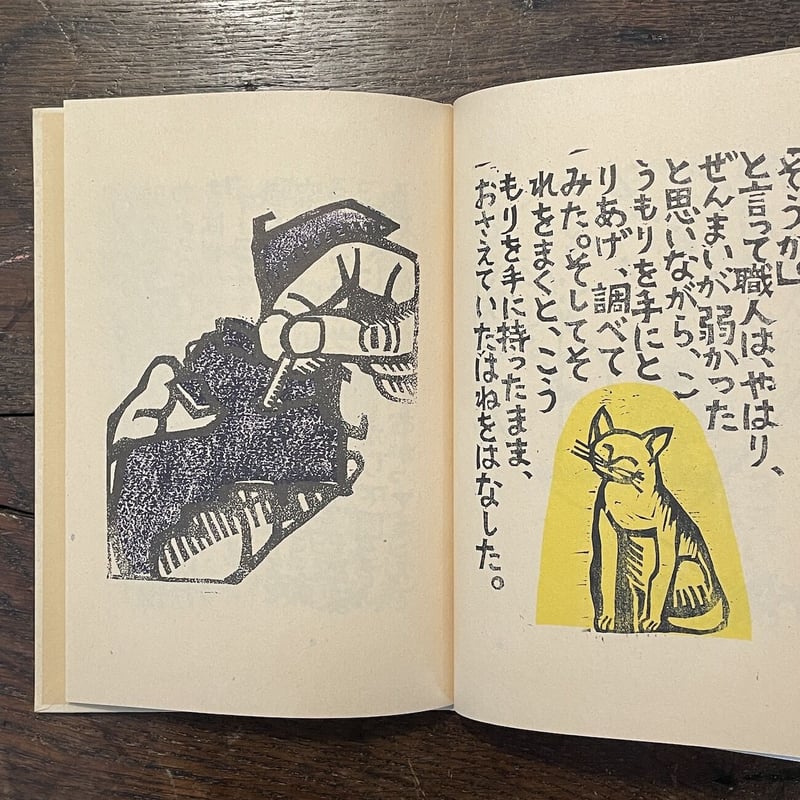 「そうか」
と言って職人は、やはり、
ぜんまいが弱かった
と思いながら、こ
うもりを手にと
りあげ、調べて
みた。そしてそ
れをまくと、こう
もりを手に持ったまま、
おさえていたはねをはなした。